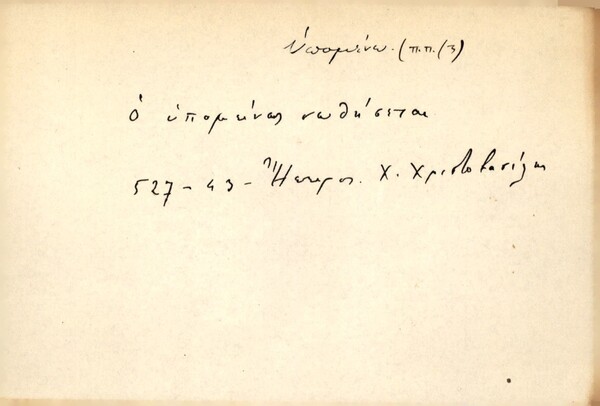 ὑπομένω. (π.π. (3)
Ὁ ὑπομείνας σωθήσεται
527 - 43 - Ἤπειρος. Χ. Χριστοβασίλης